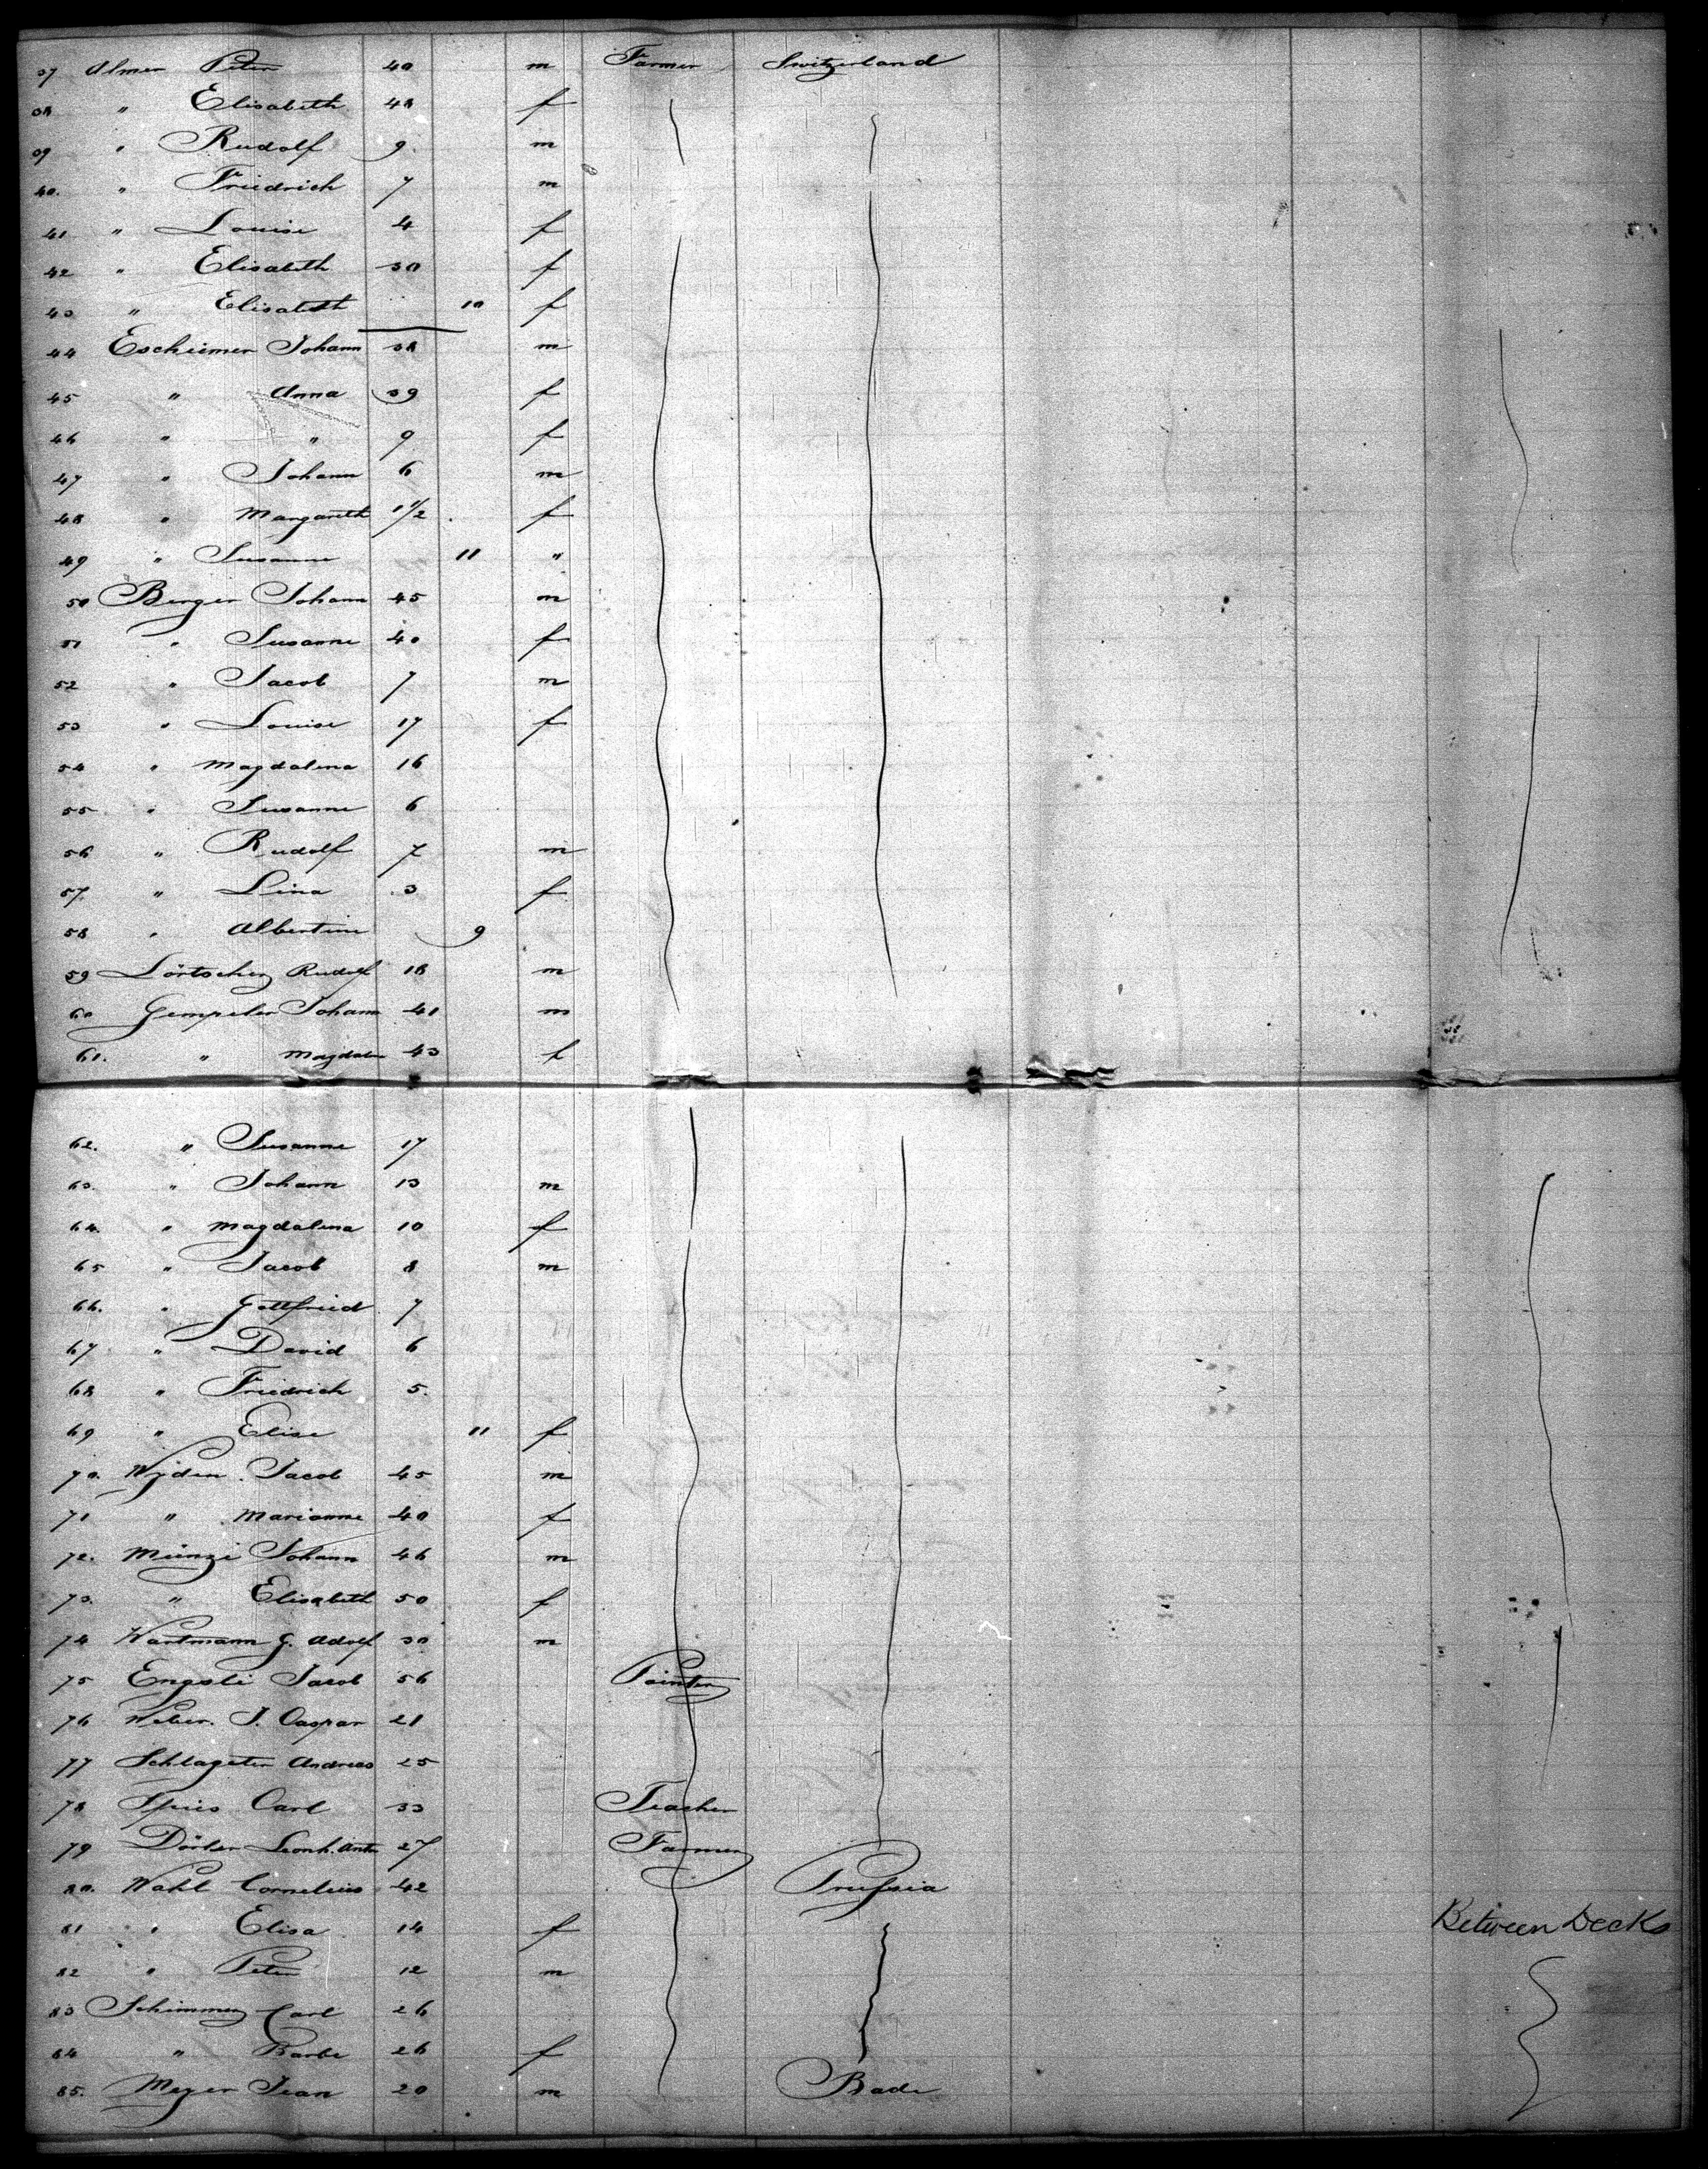 37 Almer Peter 40 m Farmer Switzerland
38 " Elisabeth 48 f
39 " Rudolf 9 m
40. " Friedrich 7 m
41 " Louise 4 f
42 " Elisabeth 30 f
43 " Elisabeth 10 f
44 Eschimer Johann 38 m
45 " Anna 39 f
46 " " 9 f
47 " Johann 6 m
48 " Margareth 1 1/2 f
49 " Susanne 11 "
50 Berger Johann 45 m
51 " Susanne 40 f
52 " Jacob 7 m
53 " Louise 17 f
54 " Magdalena 16
55 " Susanne 6
56 " Rudolf 7 m
57 " Lina 3 f
58 " Albertine 9
59 Lörtscher Rudolf 18 m
60 Gempeler Johann 41 m
61. " Magdalen 43 f
62. " Susanne 17
63. " Johann 13 m
64. " Magdalena 10 f
65 " Jacob 8 m
66. " Gottfried 7
67 " David 6
68 " Friedrich 5.
69 " Elise 11 f
70. Wyden Jacob 45 m
71 " Marianne 40 f
72. Münzi Johann 46 m
73. " Elisabeth 50 f
74 Wartmann G. Adolf 30 m
75 Engeli Jacob 56 Painter
76 Weber. J. Caspar 21
77 Schlageter Andreas 25
78 Spies Carl 33 Teacher
79 Dörler Leonh. Ant. 27 Farmer
80. Wahl Cornelius 42 Prussia
81 " Elisa 14 f Between Decks
82 " Peter 12 m
83 Schimmer Carl 26
84 " Barbe 26 f
85. Meyer Jean 20 m Bade